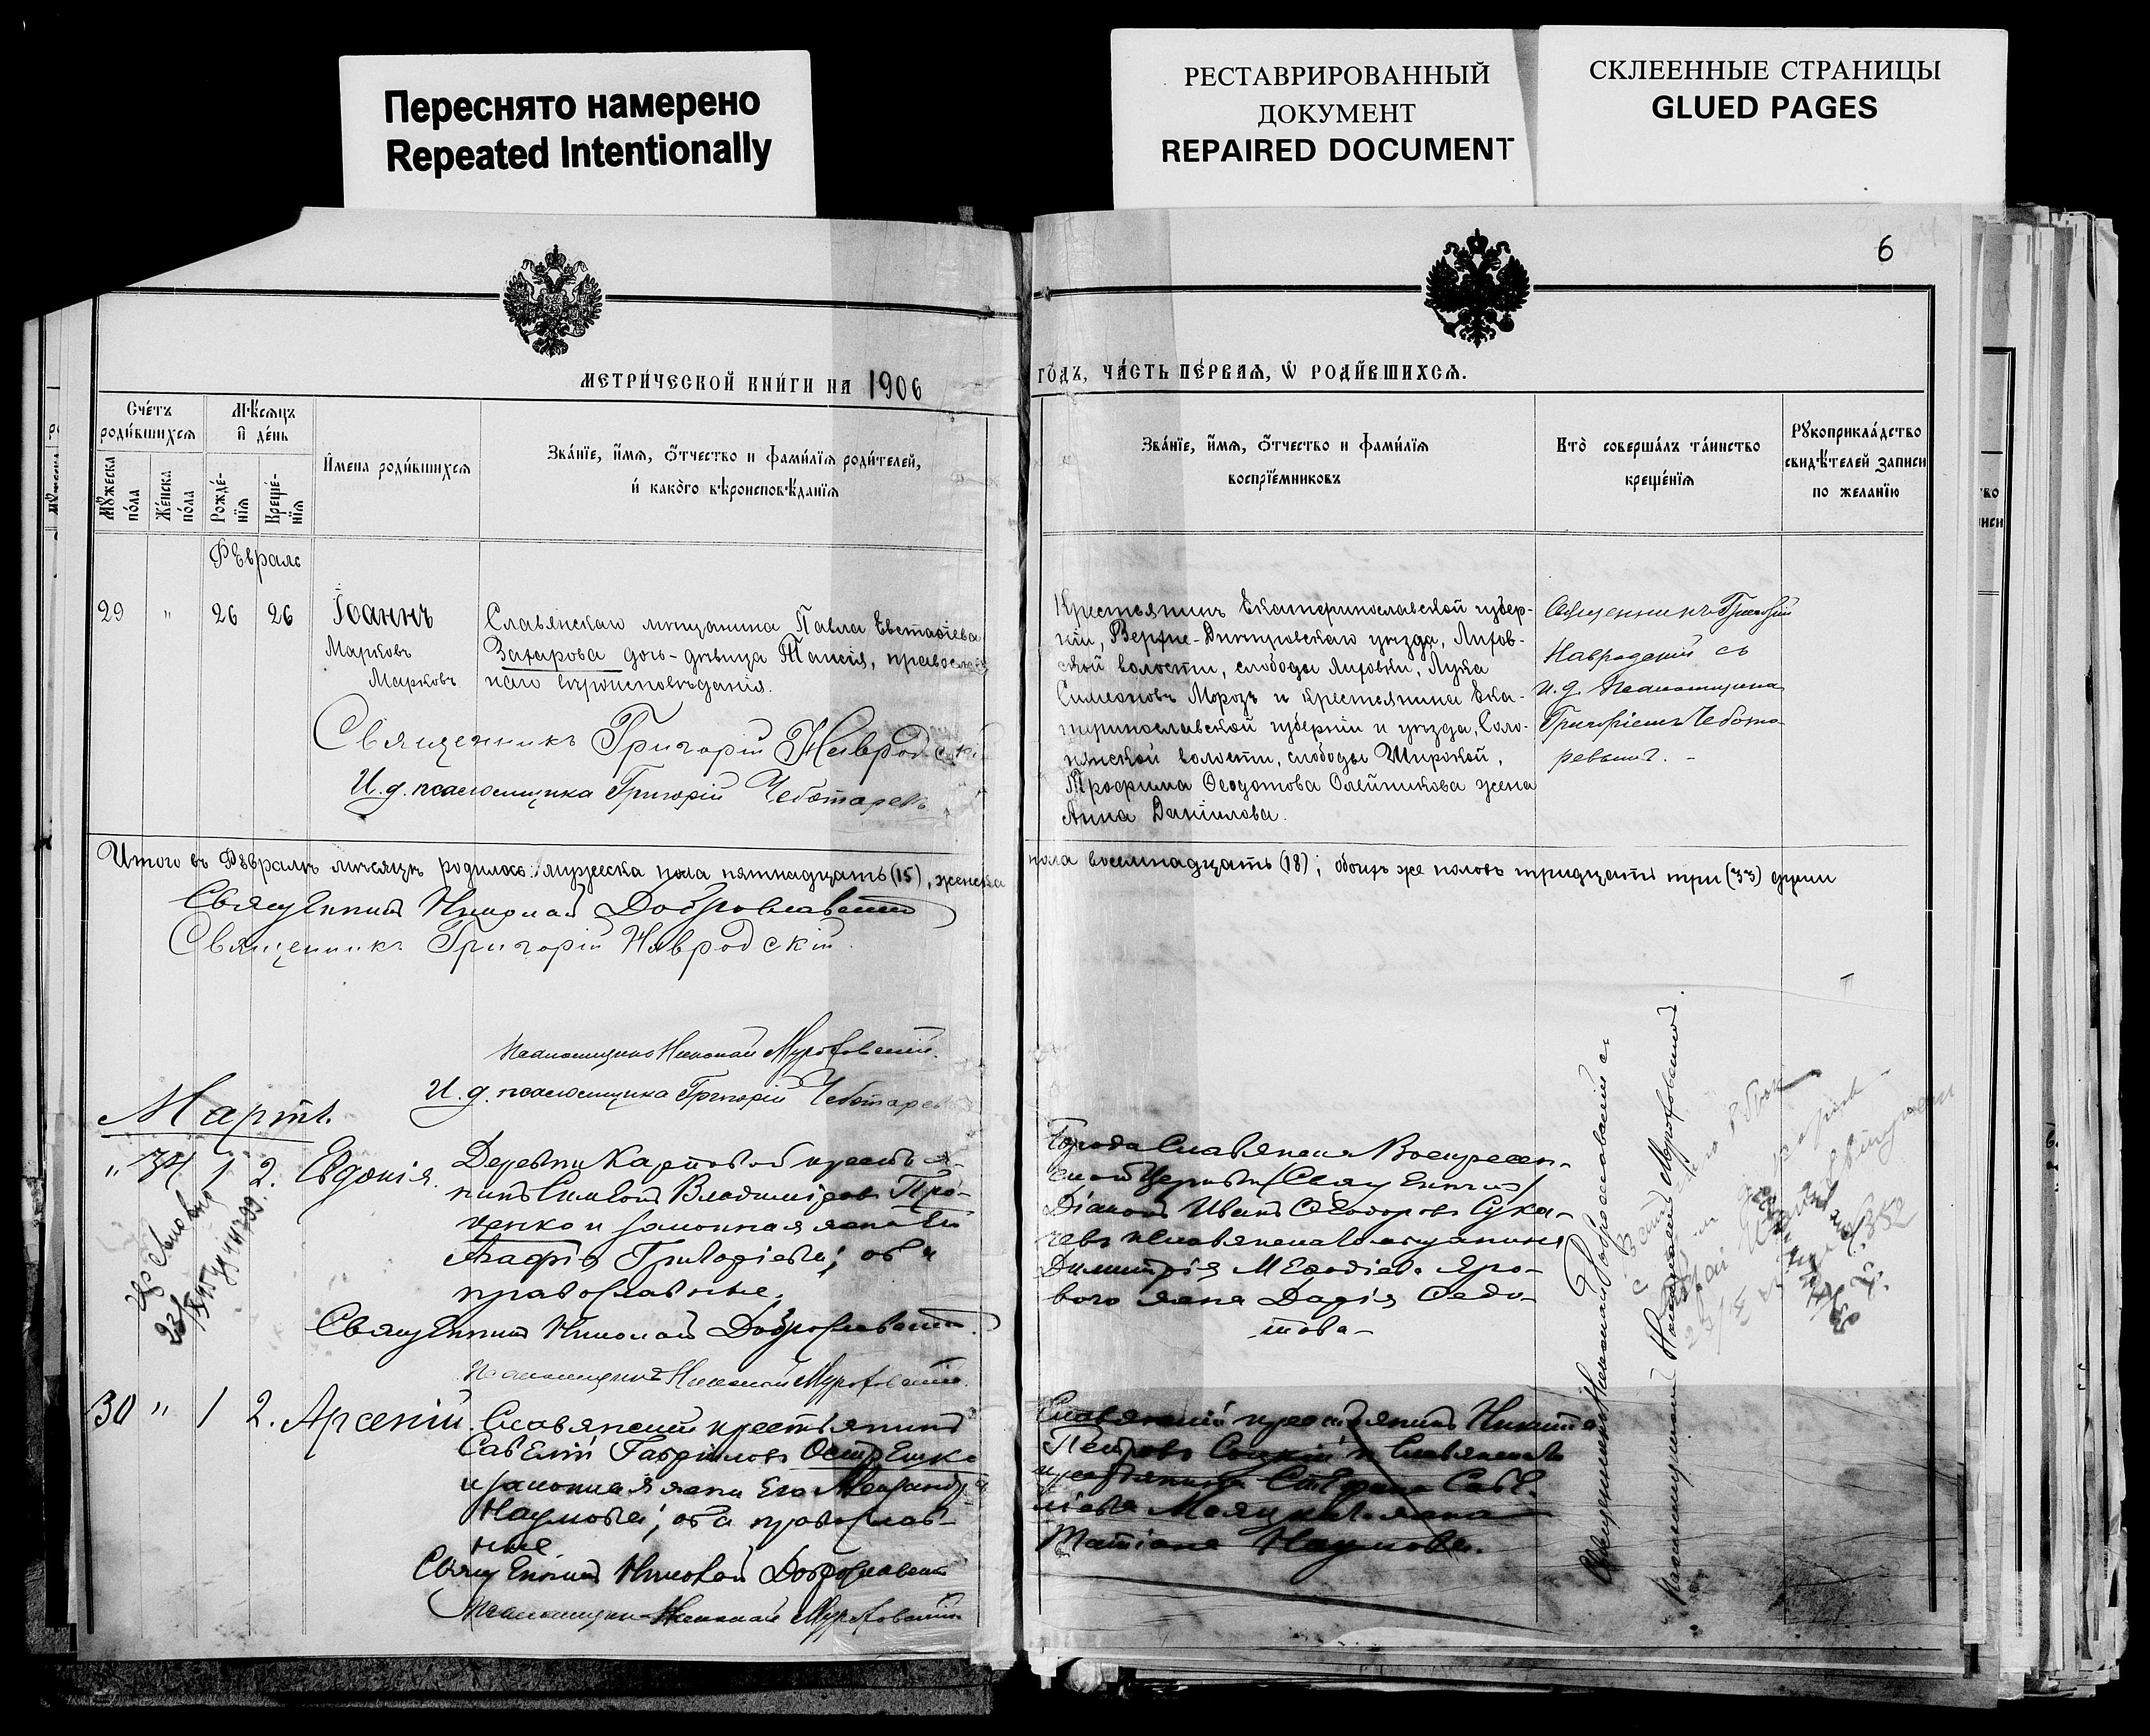 Переснято намерено
Repeated Intentionally
РЕСТАВРИРОВАННЫЙ
ДОКУМЕНТ
REPAIRED DOCUMENT
СКЛЕЕННЫЕ СТРАНИЦЫ
GLUED PAGES
6
МЕТРИ́ЧЕСКОЙ КНИ́ГИ НА 1906
ГО́ДЪ, ЧА́СТЬ ПЕ́РВАѦ, Ѡ РОДИ́ВШИХСѦ.
Сче́тъ
роди́вшихсѧ
Мѣ́сѧцъ
и де́нь
Мꙋ́жеска
по́ла
Же́нска
по́ла
Рожде́-
нїѧ
Креще́-
нїѧ
И́мена роди́вшихсѧ
Зва́нїе, и́мѧ, о́тчество и фами́лїѧ роди́телей,
и́ како́го вѣроисповѣ́данїѧ
Зва́нїе, и́мѧ, о́тчество и фами́лїѧ
воспрїе́мниковъ
Кто̀ соверша́лъ та́инство
креще́нїѧ
Рꙋкоприкла́дство
свидѣ́телей записи
по жела́нїю
Февраль
29 " 26 26 Іоаннъ
Марковъ
Марковъ
Славянскаго мѣщанина Павла Евстафіева
Захарова дочь-дѣвица Таисія, православ
наго вѣроисповѣданія.
Священникъ Григорій Навродскій
И. д. псаломщика Григорій Чеботаревъ
Крестьянинъ Екатеринославской губер-
ніи, Верхне-Днѣпровскаго уѣзда, Лихов-
ской волости, слободы Лиховки, Лука
Симеоновъ Морозъ и крестьянина Ека-
теринославской губерніи и уѣзда, Соло-
нянской волости, слободы Широкой,
Трофима Ѳеодотова Олейникова жена
Анна Даніилова.
Священникъ Григорій
Навродскій съ
и. д. псаломщика
Григоріемъ Чебота-
ревымъ. -
Итого въ Февралѣ мѣсяцѣ родилось: мужеска пола пятнадцать (15), женска
пола восемнадцать (18); обоихъ же половъ тридцать три (33) души
Священникъ Николай Доброславскій
Священникъ Григорій Навродскій.
Псаломщикъ Николай
И. д. псаломщика Григорій Чеботаревъ
Мартъ.
" 34 1 2. Евдокія.
Деревни Карповой крестья-
нинъ Симеонъ Владиміровъ Про-
ценко и законная жена его
Агафія Григоріева; оба
православные.
Священникъ Николай Доброславскій
Псаломщикъ Николай
Города Славянска Воскресен-
ской Церкви (Священникъ)
Діаконъ Иванъ Ѳеодоровъ Сука-
чевъ и Славянскаго мѣщанина
Димитрія Меѳодіева Яро-
вого жена Дарія Ѳедо-
това -
30 " 1 2. Арсеній.
Славянскій крестьянинъ
Савелій Гавріиловъ Остр
и законная жена его Александра
Наумова; оба православ-
ные
Священникъ Николай Доброславскій
Псаломщикъ Николай
Славянскій крестьянинъ Никита
Петровъ и Славянскаго
крестьянина Стефана Саве-
ліева жена
Татіана Наумова.
Священникъ Николай Доброславскій съ
Псаломщикомъ Николаемъ